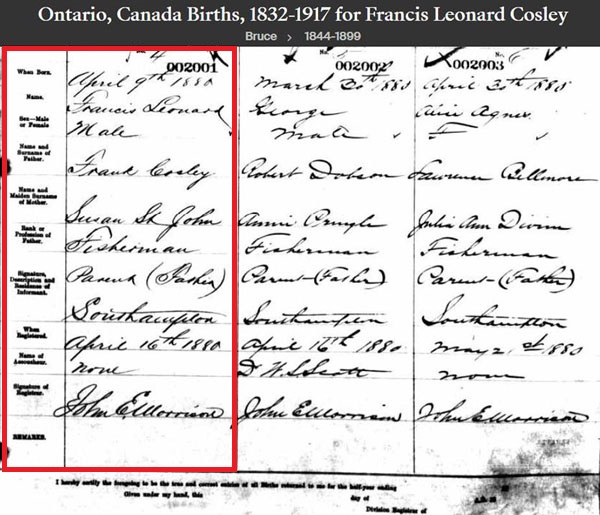 Ontario, Canada Births, 1832-1917 for Francis Leonard Cosley
Bruce > 1844-1899
No. 4 No. No. 6
002001 002002 002003
When Born. April 9th 1880 March 30th 1880 April 30th 1880
Name. Francis Leonard George Alice Agnes
Sex—Male or Female Male Male F
Name and Surname of Father. Frank Cosley Robert Dobson Lawrence Bellmore
Name and Maiden Surname of Mother. Susan St John Annie Pringle Julia Ann
Rank or Profession of Father. Fisherman Fisherman Fisherman
Signature, Description and Residence of Informant. Parent (Father) Parent (Father) Parent (Father)
Southampton Southampton Southampton
When Registered. April 16th 1880 April 16th 1880 May 21st 1880
Name of Accoucheur. none D W S Scott none
Signature of Registrar. John E Morrison John E Morrison John E Morrison
REMARKS.
I hereby certify the foregoing to be the true and correct entries of all Births returned to me for the half-year ending
Given under my hand, this day of A.D. 18
Division Registrar of